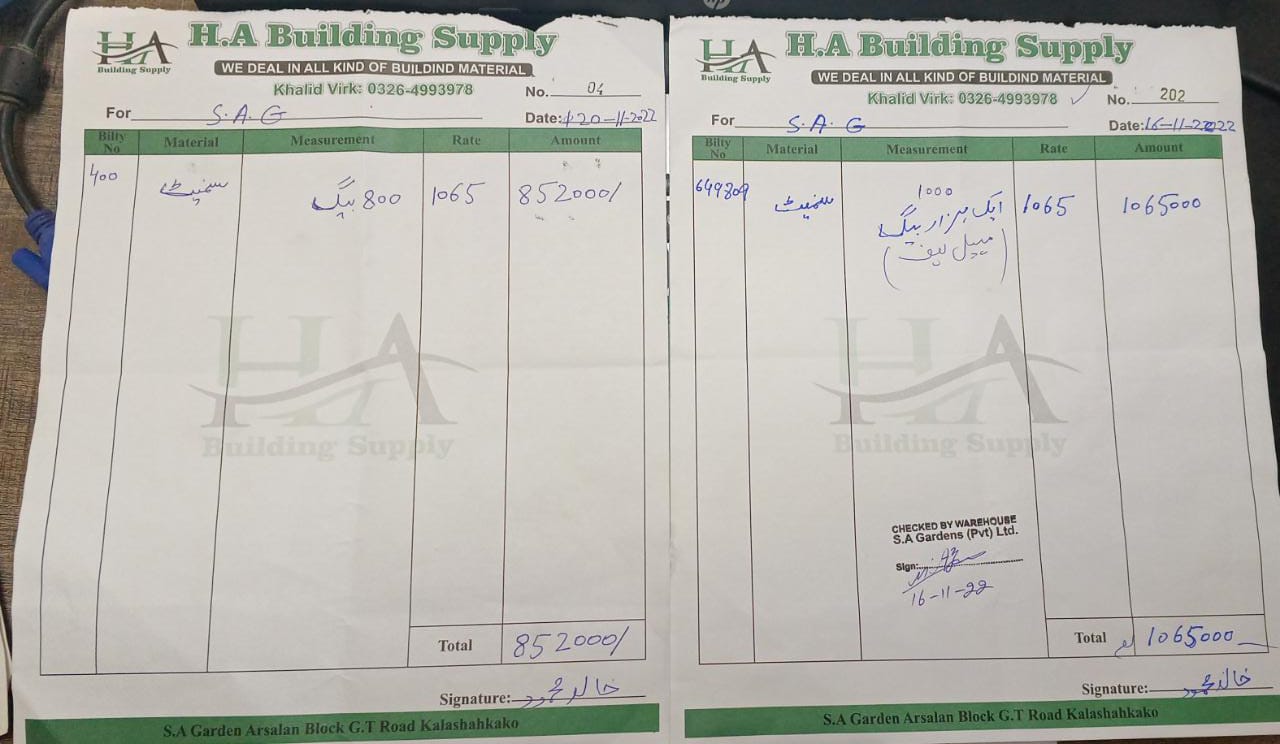 HA
Building Supply
H.A Building Supply
WE DEAL IN ALL KIND OF BUILDIND MATERIAL
Khalid Virk: 0326-4993978
No. 04
For S.A.G
Date: 20-11-2022
Bilty No
Material
Measurement
Rate
Amount
400
سمنیٹ
800 بیگ
1065
852000/
HA
Building Supply
Total
852000/
Signature: خالد محمود
S.A Garden Arsalan Block G.T Road Kalashahkako
HA
Building Supply
H.A Building Supply
WE DEAL IN ALL KIND OF BUILDIND MATERIAL
Khalid Virk: 0326-4993978
No. 202
For S.A G
Date: 16-11-2022
Bilty No
Material
Measurement
Rate
Amount
649809
سمنیٹ
1000
ایک ہزار بیگ
(میپل لیف)
1065
1065000
HA
Building Supply
CHECKED BY WAREHOUSE
S.A Gardens (Pvt) Ltd.
Sign:
16-11-22
Total
1065000
Signature: خالد محمود
S.A Garden Arsalan Block G.T Road Kalashahkako